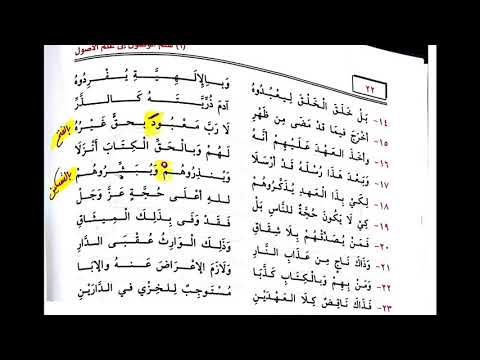 (١) سلم الوصول إلى علم الأصول
٢٢
١٤- بَلْ خَلَقَ الْخَلْقَ لِيَعْبُدُوهُ وَبِالإِلَهِيَّةِ يُفْرِدُوهُ
١٥- أَخْرَجَ فِيمَا قَدْ مَضَى مِنْ ظَهْرِ آدَمَ ذُرِّيَّتَهُ كَالذَّرِّ
١٦- وَأَخَذَ الْعَهْدَ عَلَيْهِمْ أَنَّهُ لَا رَبَّ مَعْبُودَ بِحَقٍّ غَيْرُهُ
بالفتح
١٧- وَبَعْدَ هَذَا رُسْلَهُ قَدْ أَرْسَلَا لَهُمْ وَبِالْحَقِّ الْكِتَابَ أَنْزَلَا
١٨- لِكَيْ بِذَا الْعَهْدِ يُذَكِّرُوهُمْ وَيُنْذِرُوهُمْ وَيُبَشِّرُوهُمْ
١٩- كَيْ لَا يَكُونَ حُجَّةٌ لِلنَّاسِ بَلْ لِلهِ أَعْلَى حُجَّةٍ عَزَّ وَجَلْ
٢٠- فَمَنْ يُصَدِّقْهُمْ بِلَا شِقَاقِ فَقَدْ وَفَى بِذَلِكَ الْمِيثَاقِ
٢١- وَذَاكَ نَاجٍ مِنْ عَذَابِ النَّارِ وَذَلِكَ الْوَارِثُ عُقْبَى الدَّارِ
٢٢- وَمَنْ بِهِمْ وَبِالْكِتَابِ كَذَّبَا وَلَازَمَ الْإِعْرَاضَ عَنْهُ وَالْإِبَا
٢٣- فَذَاكَ نَاقِضٌ كِلَا الْعَهْدَيْنِ مُسْتَوْجِبٌ لِلْخِزْيِ فِي الدَّارَيْنِ